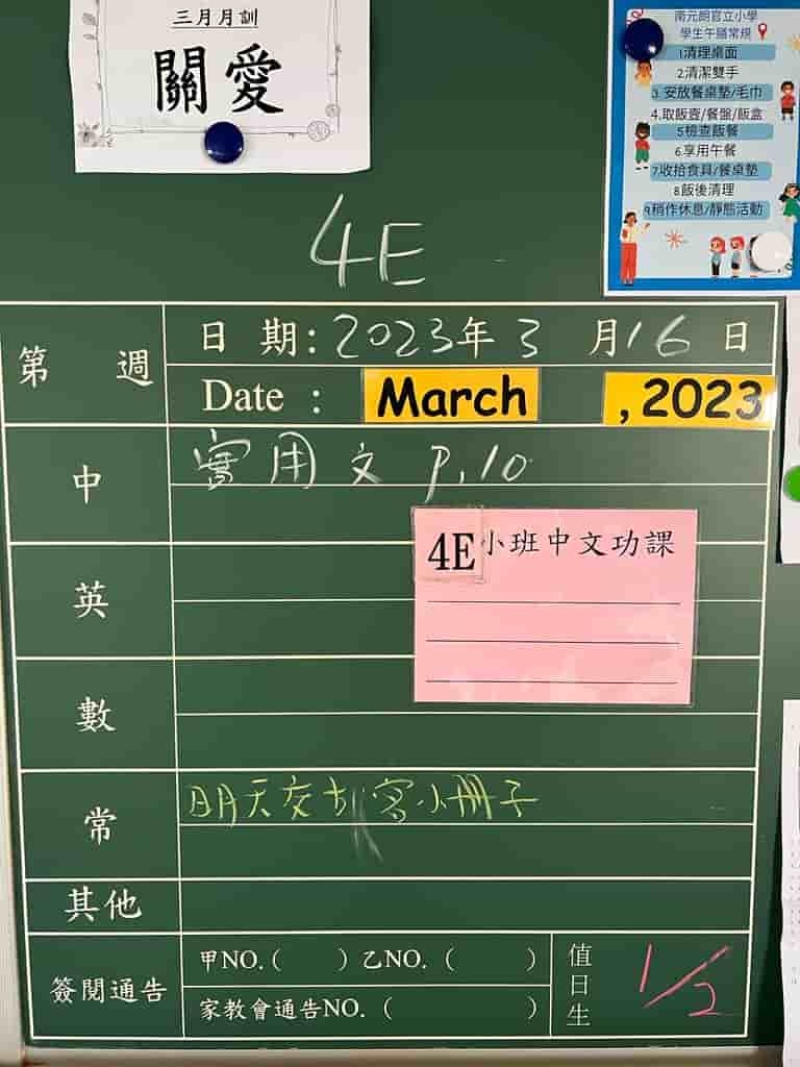 三月月訓
關愛
南元朗官立小學
學生午膳常規
1清理桌面
2.清潔雙手
3.安放餐桌墊/毛巾
4.取飯壺/餐盤/飯盒
5檢查飯餐
6.享用午餐
7收拾食具/餐桌墊
8飯後清理
9稍作休息/靜態活動
4E
第 週
日 期:2023年3 月16 日
Date : March ,2023
中
實用文 P.10
4E小班中文功課
英
數
常
明天交 小冊子
其他
簽閱通告
甲NO.( )乙NO.( )
家教會通告NO.( )
值日生
1/2